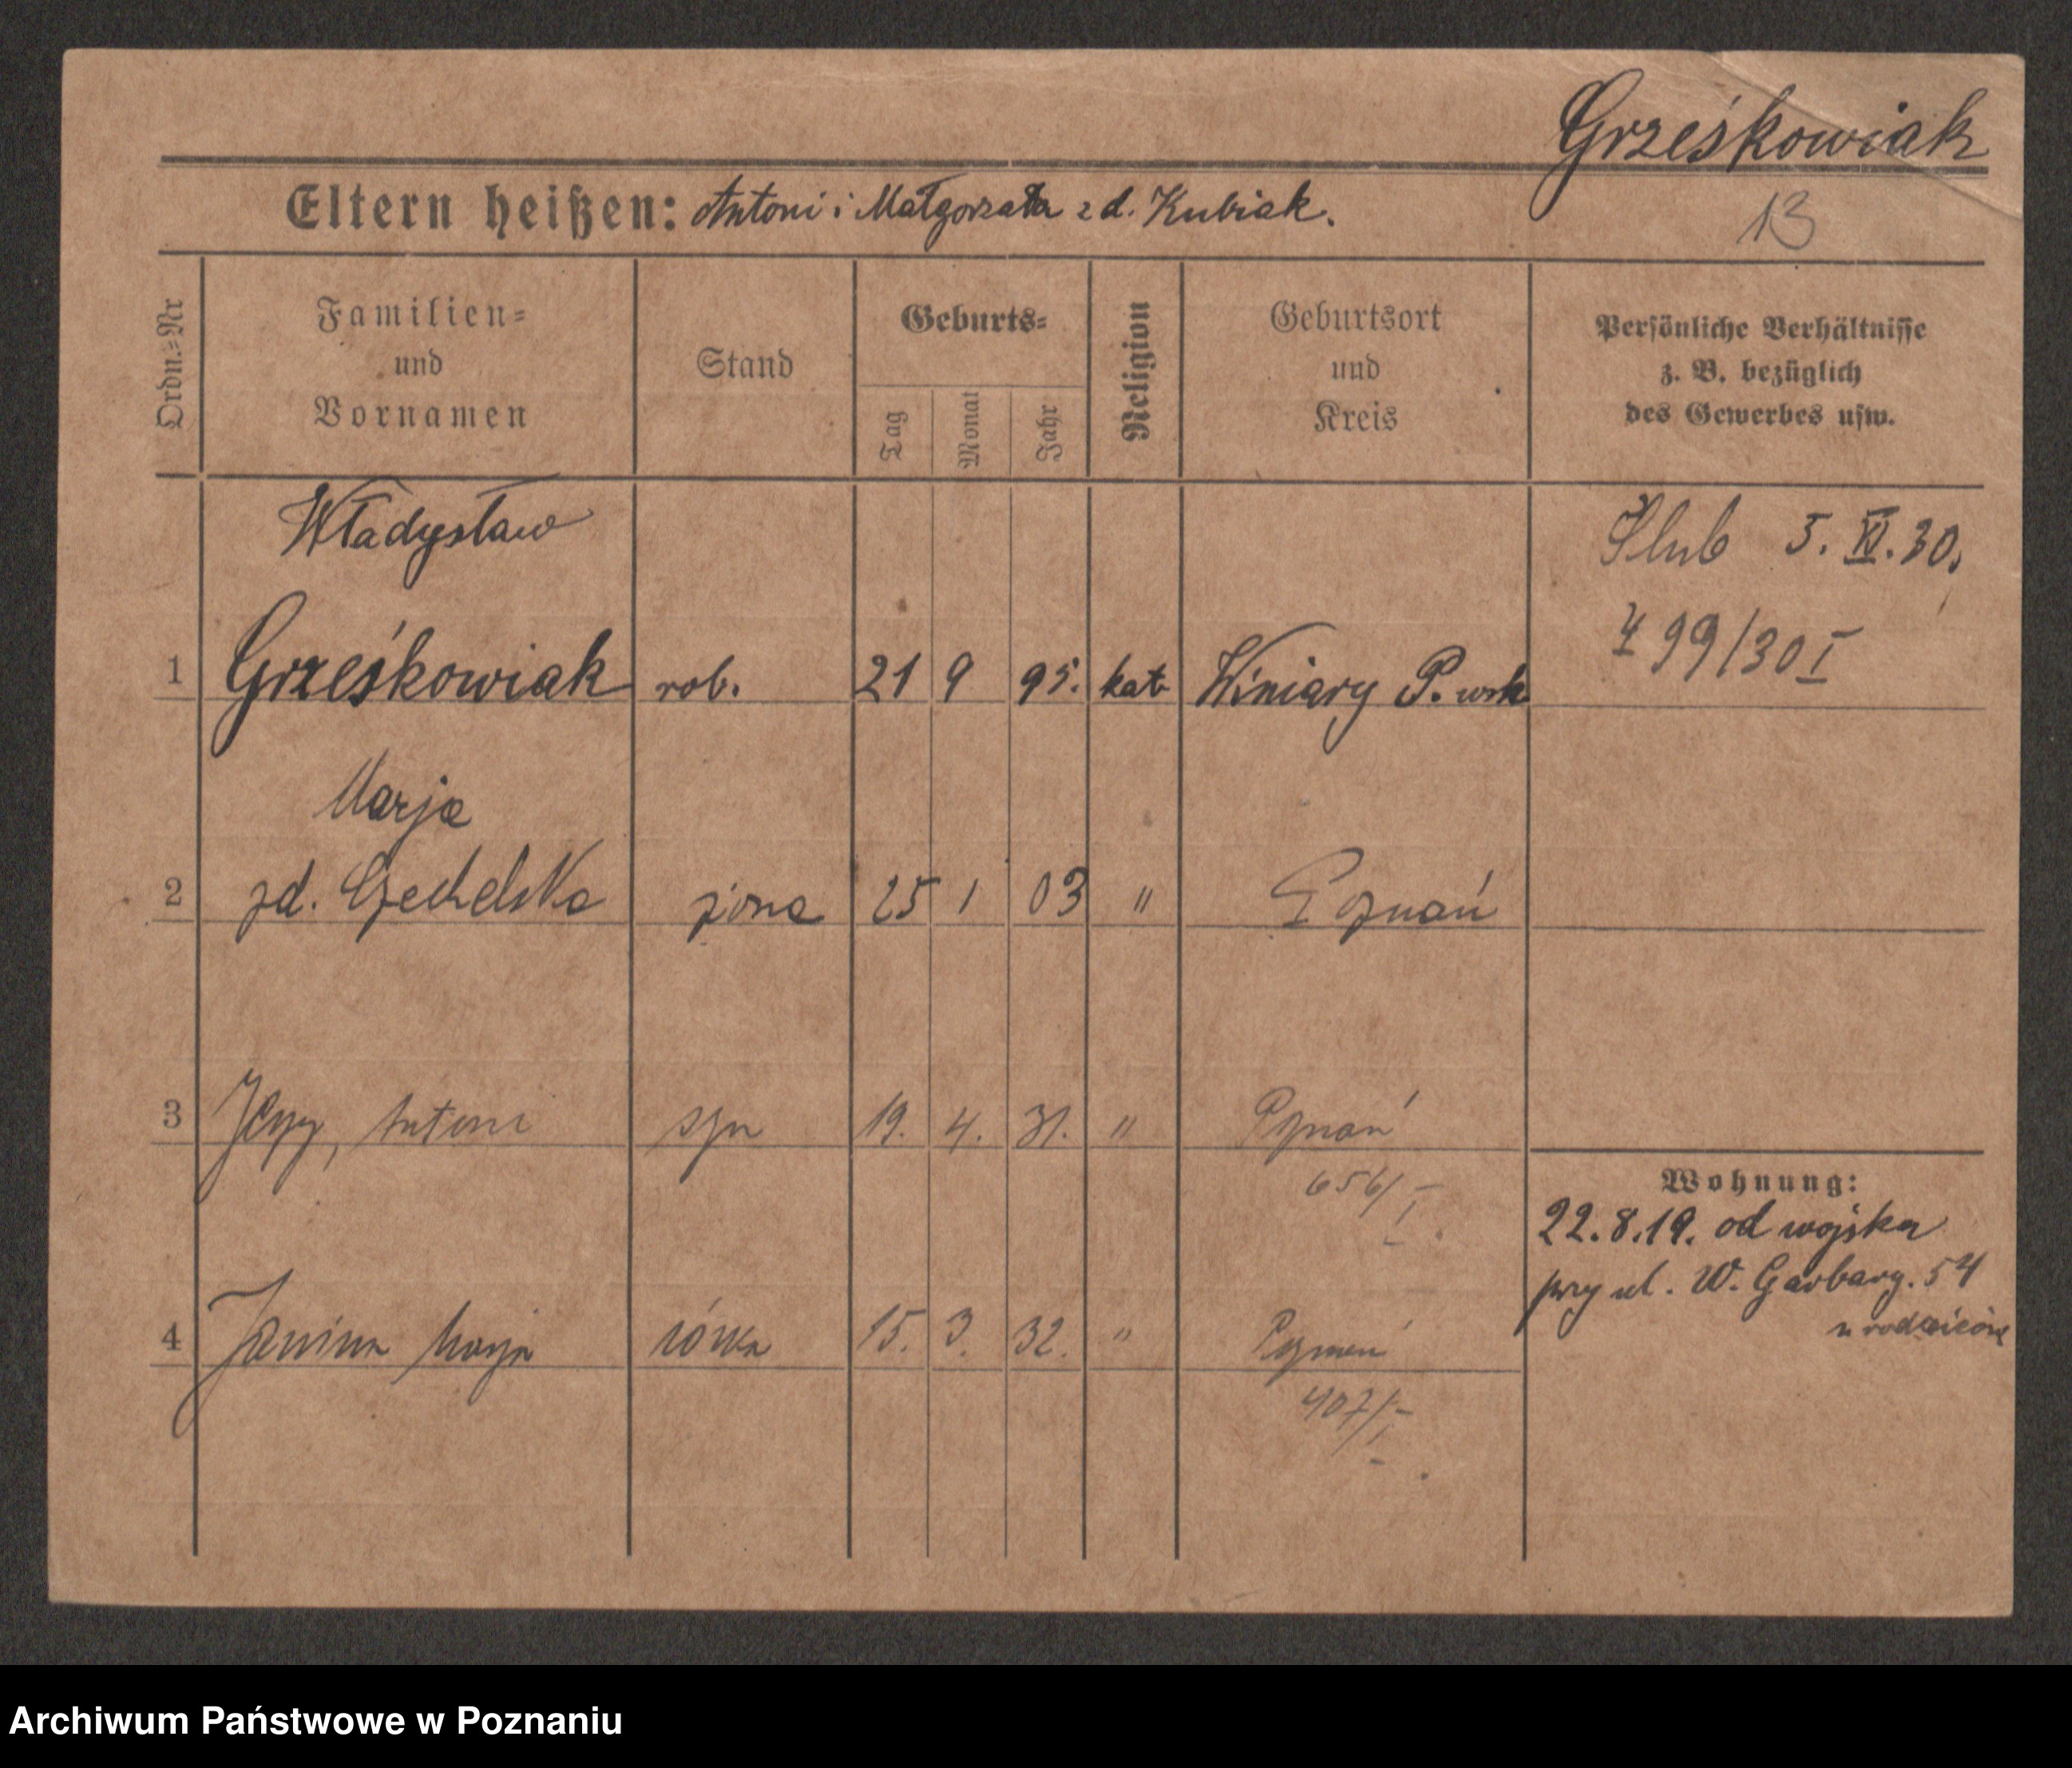 Grześkowiak
Eltern heißen: Antoni i Małgorzata z d. Kubiak.
13
Ordn.=Nr
Familien=
und
Vornamen
Stand
Geburts=
Tag
Monat
Jahr
Religion
Geburtsort
und
Kreis
Persönliche Verhältnisse
z. B. bezüglich
des Gewerbes usw.
Władysław
Ślub 5. XI. 30.
1 Grześkowiak rob. 21 9 95. kat Winiary P. wsk
99/30 I
Marja
2 zd. żona 25 1 03 " Poznań
3 Jerzy, Antoni syn 19. 4. 31. " Poznań
656/I
Wohnung:
22.8.19. od wojska
przy ul. W. Garbary. 54
u rodziców
4 Janina Marja córka 15. 3. 32. " Poznań
407/I
Archiwum Państwowe w Poznaniu